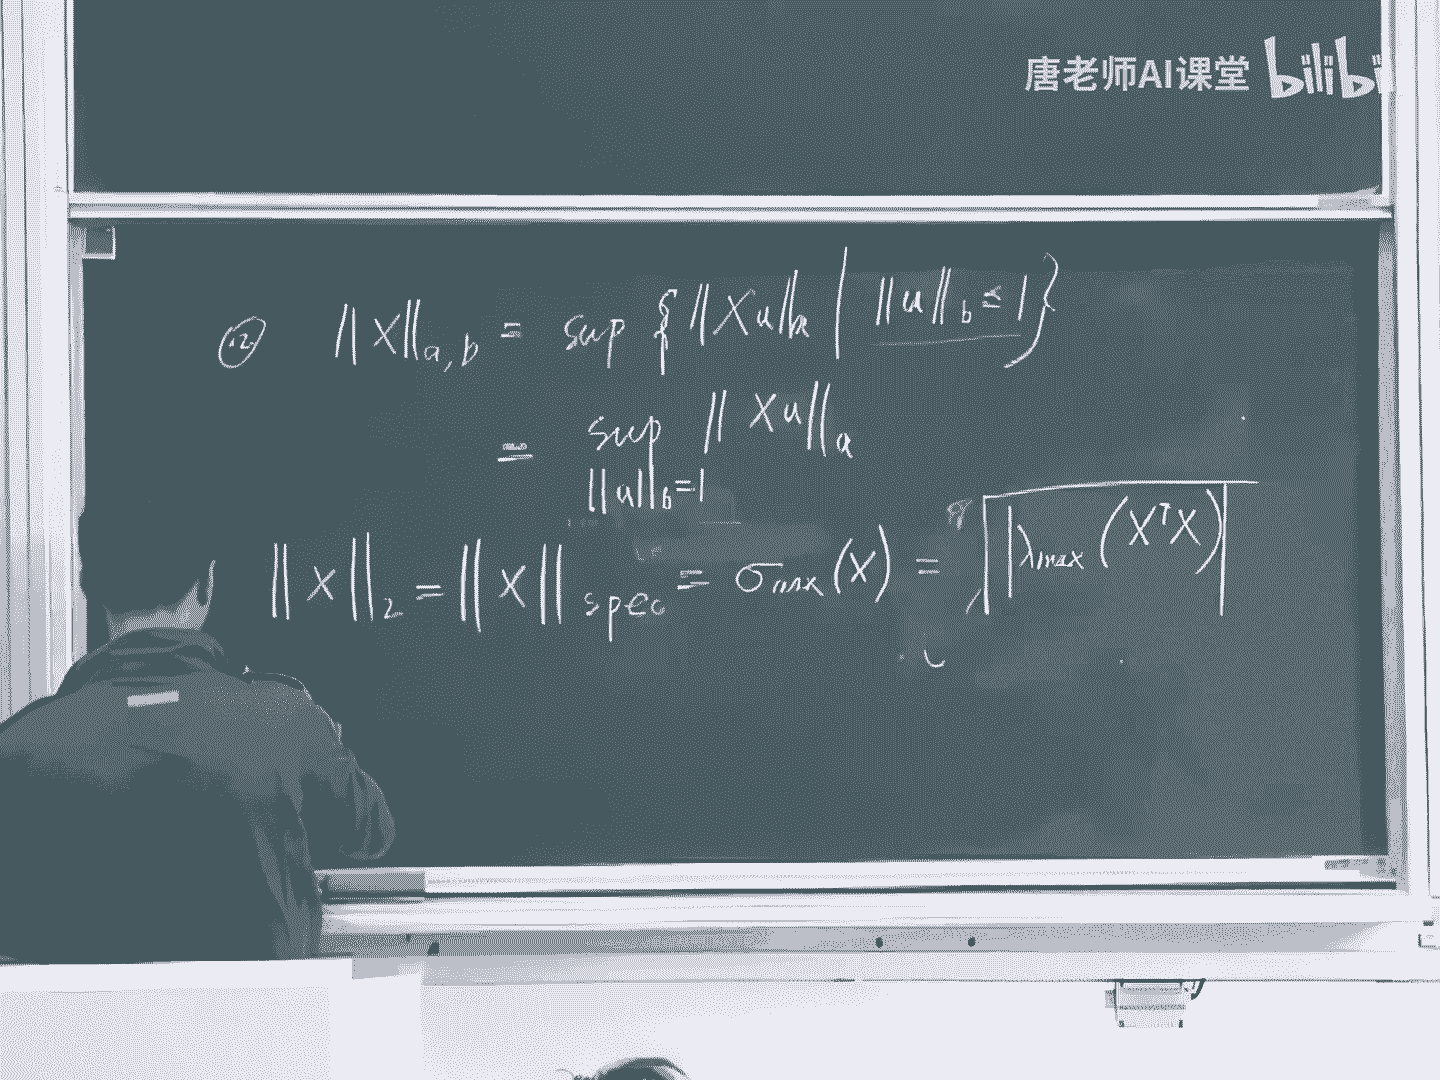 唐老师AI课堂 bilibi
② ‖X‖a,b = sup {‖Xu‖a | ‖u‖b ≤ 1}
= sup ‖Xu‖a
‖u‖b=1
‖X‖2 = ‖X‖spec = σmax(X) = √|λmax(XᵀX)|